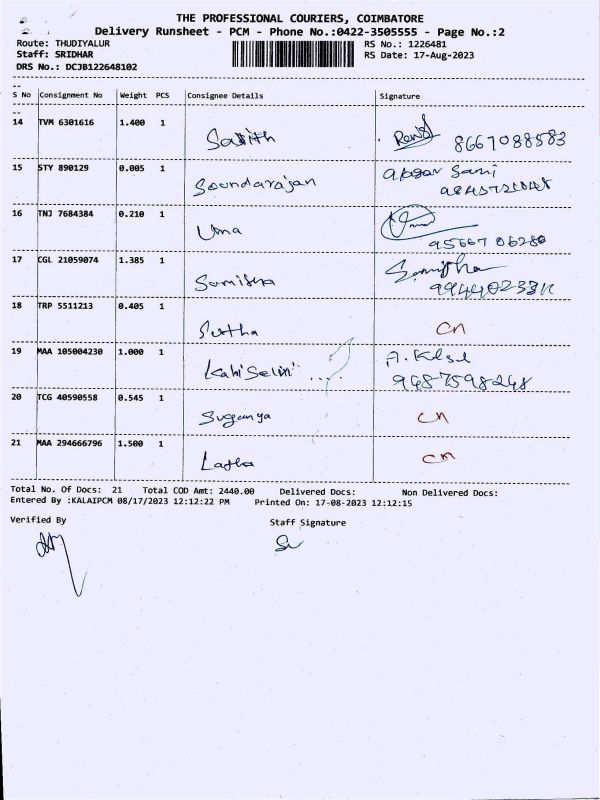 THE PROFESSIONAL COURIERS, COIMBATORE
Delivery Runsheet - PCM - Phone No.:0422-3505555 - Page No.:2
Route: THUDIYALUR RS No.: 1226481
Staff: SRIDHAR RS Date: 17-Aug-2023
DRS No.: DCJB122648102
S No Consignment No Weight PCS Consignee Details Signature
14 TVM 6301616 1.400 1
8667088583
15 STY 890129 0.005 1
Soundarajan
16 TNJ 7684384 0.210 1
Uma
9566706280
17 CGL 21059074 1.385 1
18 TRP 5511213 0.405 1
cn
19 MAA 105004230 1.000 1
9487598248
20 TCG 40590558 0.545 1
Suganya cn
21 MAA 294666796 1.500 1
Latha cn
Total No. Of Docs: 21 Total COD Amt: 2440.00 Delivered Docs: Non Delivered Docs:
Entered By :KALAIPCM 08/17/2023 12:12:22 PM Printed On: 17-08-2023 12:12:15
Verified By Staff Signature